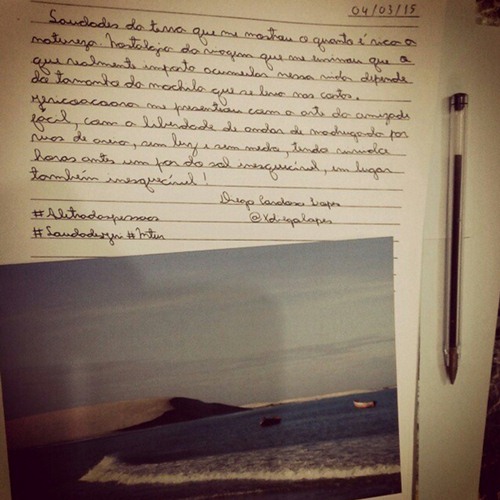 04/03/15
Saudades da terra que me mostrou o quanto é rica a
natureza. Nostalgia da viagem que me ensinou que o
que realmente importa acumular nessa vida depende
do tamanho da mochila que se leva nas costas.
Jericoacoara me presenteou com a arte da amizade
fácil, com a liberdade de andar de madrugada por
ruas de areia, sem luz, e sem medo, tendo vivido
horas antes um por do sol inesquecível, em lugar
também inesquecível!
Diego Cardoso Lopes
#Aletradaspessoas @Xdiegolopes
#Saudades #Mtur